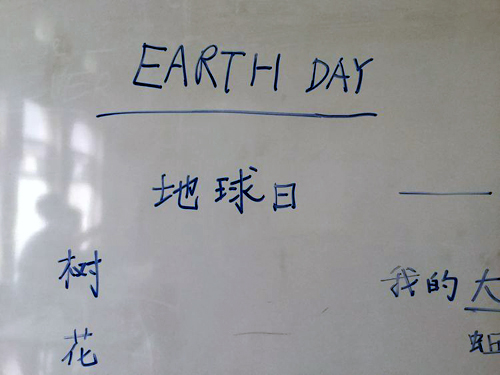 EARTH DAY
地球日
树
我的大
花
蚯